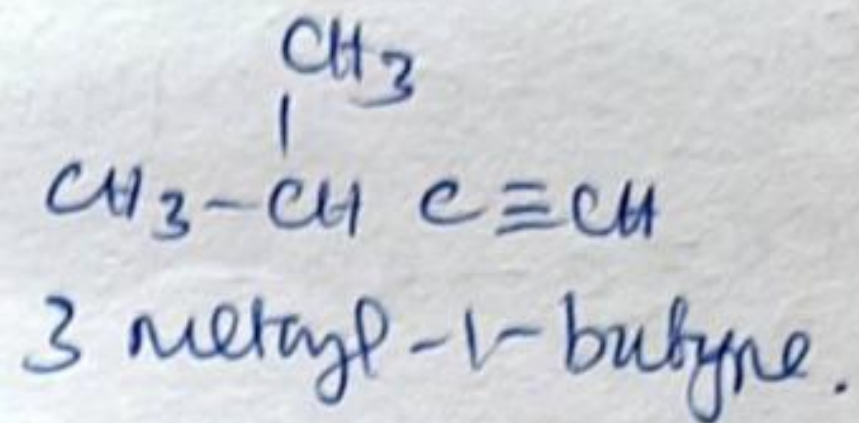 CH3
|
CH3-CH C≡CH
3 metayl-1-butyne.